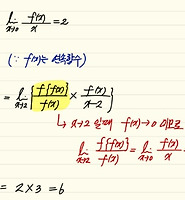 lim x→0 f(x)/x = 2
(∵ f(x)는 연속함수)
= lim x→2 { f{f(x)}/f(x) × f(x)/x-2 }
↳ x→2 일때 f(x)→0 이므로
lim x→2 f{f(x)}/f(x) = lim x→0 f(x)/x
= 2×3 = 6